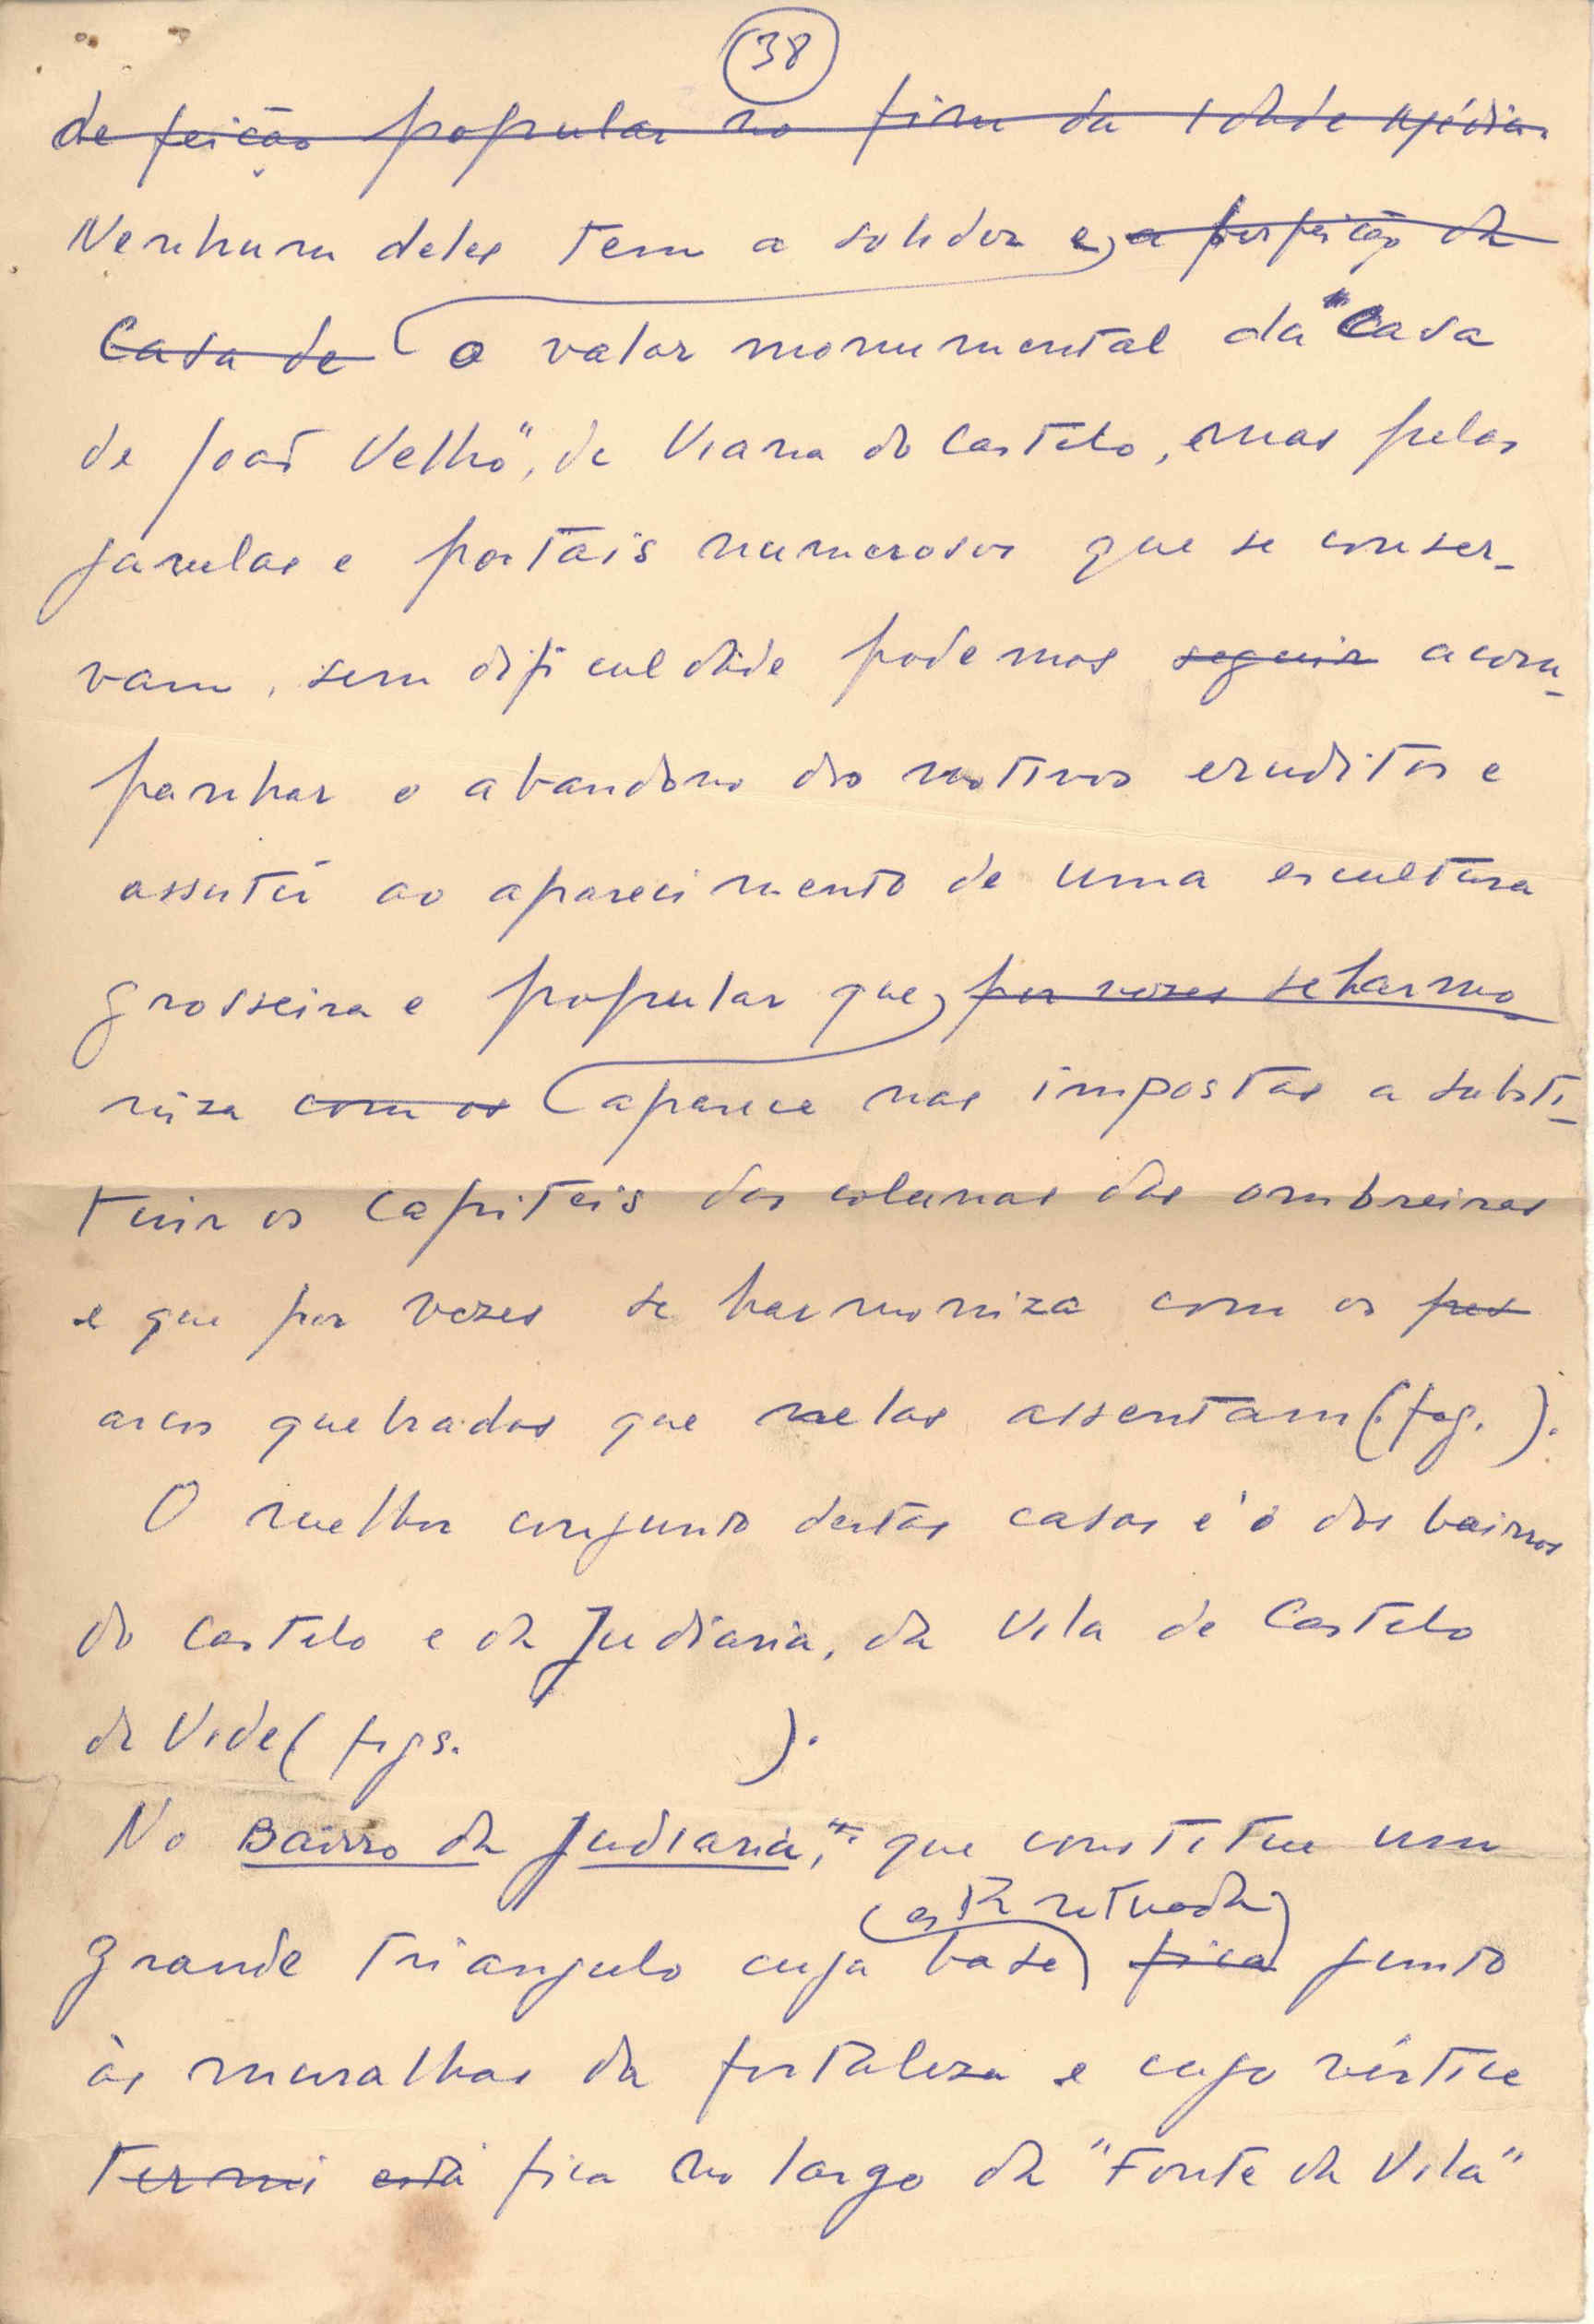 38
de feição popular no fim da Idade Média.
Nenhum deles tem a solidez e a perfeição da
Casa de o valor monumental da "Casa
de João Velho", de Viana do Castelo, mas pelas
janelas e portais numerosos que se conser-
vam, sem dificuldade podemos seguir acom-
panhar o abandono dos motivos eruditos e
assistir ao aparecimento de uma escultura
grosseira e popular que por vezes se harmo
niza com os aparece nas impostas a substi-
tuir os capiteis das colunas das ombreiras
e que por vezes se harmoniza com os
arcos quebrados que nelas assentam (fig. ).
O melhor conjunto destas casas é o dos bairros
do Castelo e da Judiaria, da Vila de Castelo
de Vide (figs. ).
No Bairro da Judiaria, que constitue um
está situada
grande triangulo cuja base fica junto
às muralhas da fortaleza e cujo vértice
termi está fica no largo da "Fonte da Vila"